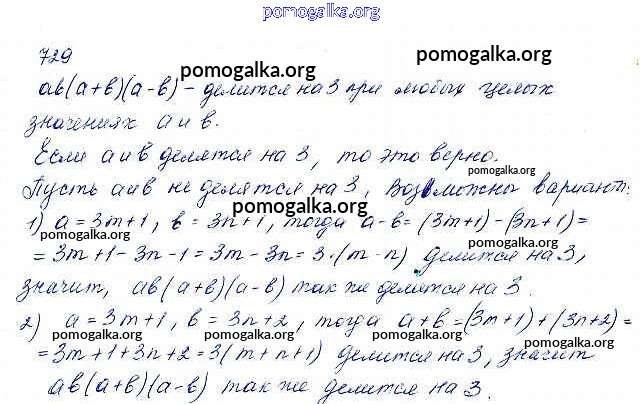 pomogalka.org
729
pomogalka.org
pomogalka.org
ab(a+b)(a-b) – делится на 3 при любых целых
значениях a и b.
Если a и b делятся на 3, то это верно.
pomogalka.org
Пусть a и b не делятся на 3, Возможны вариант:
pomogalka.org
1) a = 3m+1, b = 3n+1, тогда a-b = (3m+1) - (3n+1) =
pomogalka.org
= 3m+1-3n-1 = 3m-3n = 3·(m-n) делится на 3,
значит, ab(a+b)(a-b) так же делится на 3.
2) a = 3m+1, b = 3n+2, тогда a+b = (3m+1)+(3n+2) =
pomogalka.org pomogalka.org pomogalka.org
= 3m+1+3n+2 = 3(m+n+1) делится на 3, значит
ab(a+b)(a-b) так же делится на 3.